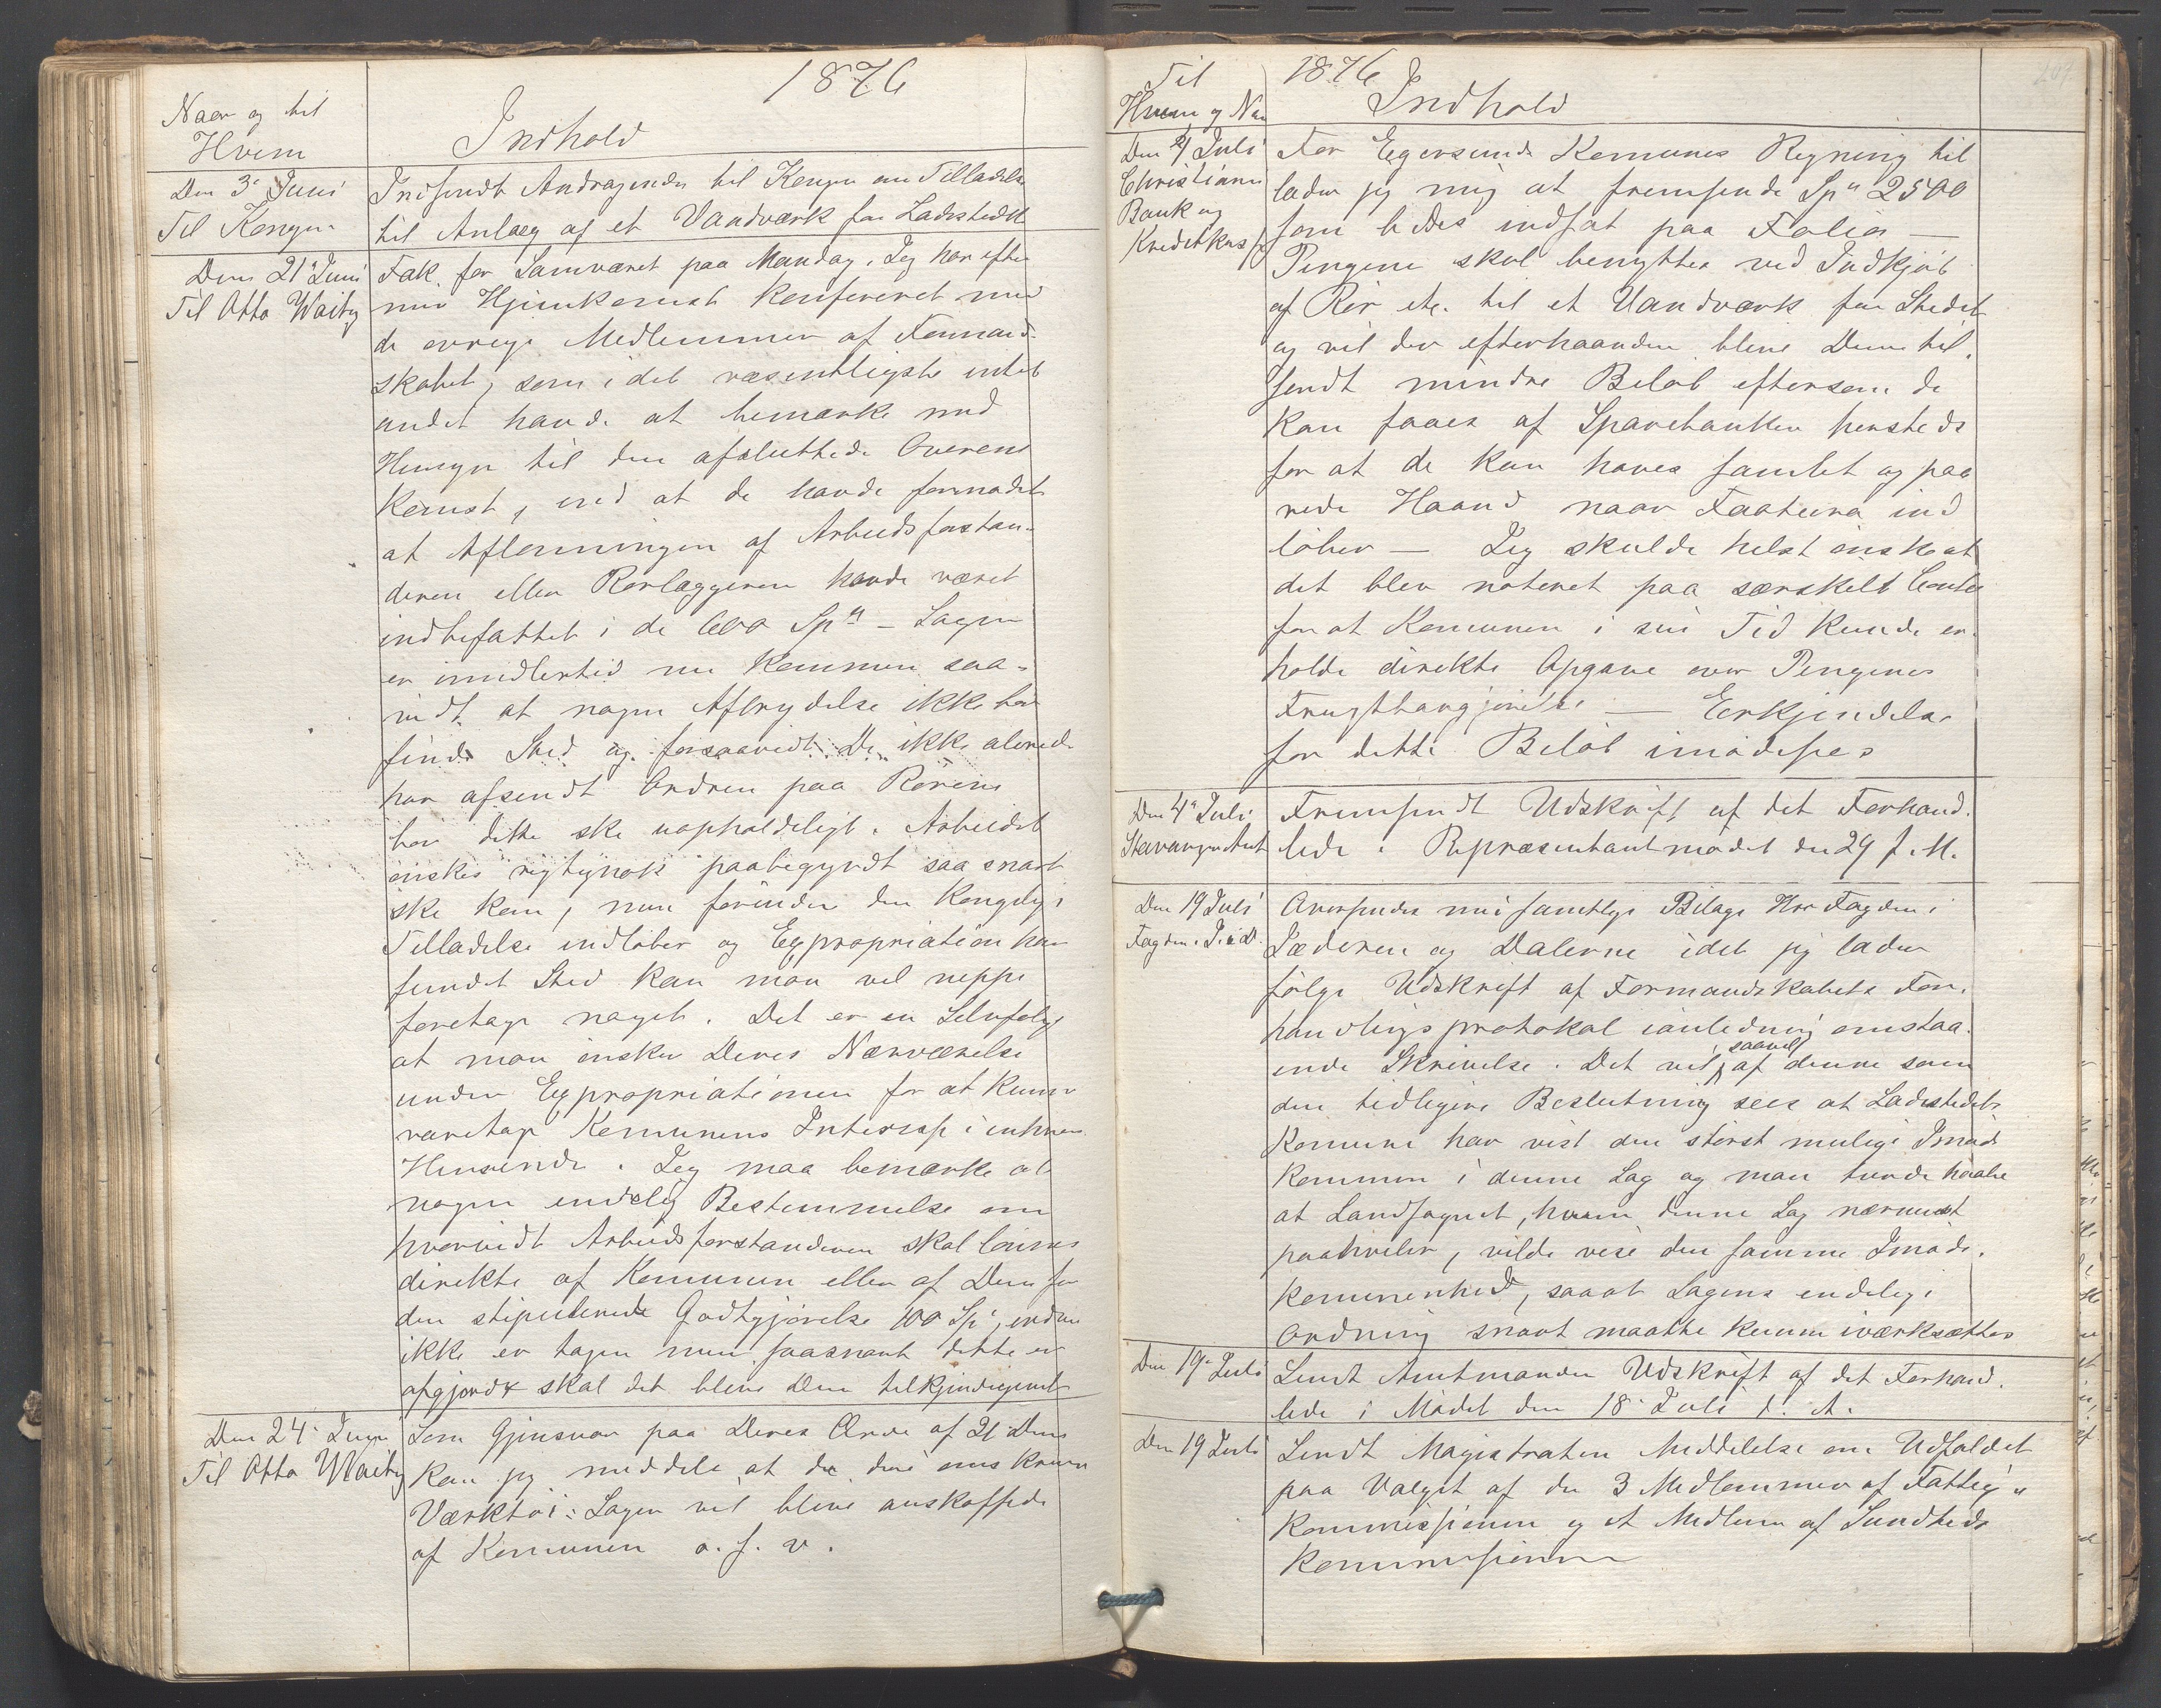 1876
Naar og til
Hvem
Indhold
Den 3 Juni
Til Kongen
Indsendt Andragende til Kongen om Tilladelse
til Anlæg af et Vandværk for Ladestedet
Den 21 Juni
Til Otto Waitz
Tak for Samværet paa Mandag. Jeg har efter
min Hjemkomst konfereret med
de øvrige Medlemmer af Formand-
skabet, som i det væsentligste intet
andet havde at bemærke med
Hensyn til den afsluttede Overens
komst, end at de havde formodet
at Aflønningen af Arbeidsforstan-
deren eller Rørlæggeren havde været
indbefattet i de 600 Spd – Sagen
er imidlertid nu kommen saa-
vidt at nogen Afbrydelse ikke bør
finde Sted og forsaavidt De ikke alerede
har afsendt Ordren paa Rørene
bør dette ske uopholdeligt. Arbeidet
ønskes rigtignok paabegyndt saa snart
ske kan, men førinden den Kongelige
Tilladelse indløber og Expropriation har
fundet Sted kan man vel neppe
foretage noget. Det er en Selvfølge
at man ønsker Deres Nærværelse
under Expropriationen for at kunne
varetage Komunens Interesse i enhver
Henseende. Jeg maa bemærke at
nogen endelig Bestemmelse om
hvorvidt Arbeidsforstanderen skal lønnes
direkte af Komunen eller af Dem for
den stipulerede Godtgjørelse 100 Sp, endnu
ikke er tagen men saasnart dette er
afgjordt skal det blive Dem tilkjendegivet
Den 24 Juni
Til Otto Waitz
Som Gjensvar paa Deres Ærede af 21 Dennes
kan jeg meddele at de deri omskrevne
Værktøi: Sager vil blive anskaffede
af Komunen o. s. v.
Til
Hvem og Naar
1876
Indhold
Den 4 Juli
Christiania
Bank og
Kreditkasse
For Egersunds Komunes Regning til
lader jeg mig at fremsende Spd 2500
som bedes indsat paa Folio –
Pengene skal benyttes ved Indkjøb
af Rør etc. til et Vandværk for Stedet
og vil der efterhaanden blive Dem til-
sendt mindre Beløb eftersom de
kan faaes af Sparebanken hersteds
for at de kan haves samlet og paa
rede Haand naar Factura ind
løber – Jeg skulde helst ønske at
det blev noteret paa særskelt Conto
for at Komunen i sin Tid kunde er-
holde direkte Opgave over Pengenes
Frugtbargjørelse – Erkjendelse
for dette Beløb imødesees
Den 4 Juli
Stavanger Amt
Fremsendt Udskrift af det Forhand-
lede i Repræsentantmødet den 29 f. M.
Den 19 Juli
Fogden i J. & D.
Oversendes med samtlige Bilage Hr Fogden i
Jæderen og Dalerne idet jeg lader
følge Udskrift af Formandskabets For-
handlingsprotokol ianledning omstaa-
ende Skrivelse. Det vil saavel af denne som
den tidligere Beslutning sees at Ladestedets
Komune har vist den størst mulige Imøde
kommen i denne Sag og man turde haabe
at Landsognet, hvem denne Sag nærmest
paahviler, vilde vise den samme Imøde-
kommenhed, saaat Sagens endelige
Ordning snart maatte kunne iværksættes
Den 19 Juli
Sendt Amtmanden Udskrift af det Forhand-
lede i Mødet den 18 Juli d. A.
Den 19 Juli
Sendt Magistraten Meddelelse om Udfaldet
paa Valget af de 3 Medlemmer af Fattig-
kommissionen og et Medlem af Sundheds
kommissionen